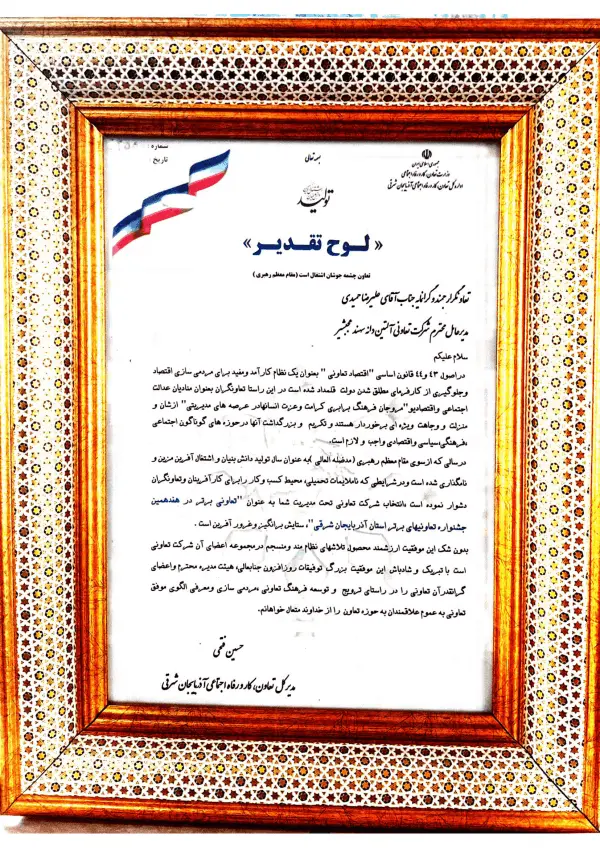 بسمه تعالی
جمهوری اسلامی ایران
وزارت تعاون، کار و رفاه اجتماعی
اداره کل تعاون، کار و رفاه اجتماعی آذربایجان شرقی
شماره :
تاریخ :
تولید
« لـوح تقـدیـر»
تعاون چشمه جوشان اشتغال است (مقام معظم رهبری )
تعاونگر ارجمند و گرانمایه جناب آقای علیرضا حمیدی
مدیرعامل محترم شرکت تعاونی آلتین دانه سهند عجبشیر
سلام علیکم
در اصول ۴۳ و ۴۴ قانون اساسی "اقتصاد تعاونی " بعنوان یک نظام کارآمد و مفید برای مردمی سازی اقتصاد
و جلوگیری از کارفرمای مطلق شدن دولت قلمداد شده است در این راستا تعاونگران بعنوان منادیان عدالت
اجتماعی و اقتصادی و "مروجان فرهنگ برابری کرامت و عزت انسانها در عرصه های مدیریتی" از شان و
منزلت و وجاهت ویژه ای برخوردار هستند و تکریم و بزرگداشت آنها در حوزه های گوناگون اجتماعی
،فرهنگی،سیاسی و اقتصادی واجب و لازم است.
در سالی که از سوی مقام معظم رهبری (مدظله العالی )به عنوان سال تولید دانش بنیان و اشتغال آفرین مزین و
نامگذاری شده است و در شرایطی که ناملایمات تحمیلی، محیط کسب و کار را برای کارآفرینان و تعاونگران
دشوار نموده است،انتخاب شرکت تعاونی تحت مدیریت شما به عنوان "تعاونی برتر در هفدهمین
جشنواره تعاونیهای برتر استان آذربایجان شرقی"، ستایش برانگیز و غرور آفرین است .
بدون شک این موفقیت ارزشمند محصول تلاشهای نظام مند و منسجم در مجموعه اعضای آن شرکت تعاونی
است با تبریک و شادباش این موفقیت بزرگ توفیقات روزافزون جنابعالی، هیئت مدیره محترم و اعضای
گرانقدر آن تعاونی را در راستای ترویج و توسعه فرهنگ تعاونی ،مردمی سازی و معرفی الگوی موفق
تعاونی به عموم علاقمندان به حوزه تعاون را از خداوند متعال خواهانم.
حسین فتحی
مدیرکل تعاون، کار و رفاه اجتماعی آذربایجان شرقی